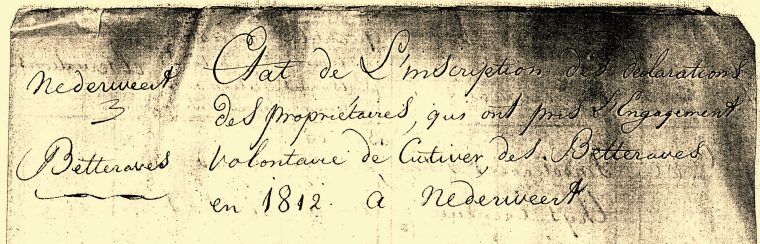 Nederweert
3
Betteraves
Etat de L'inscription des declarations
des propriétaires, qui ont pris L'Engagement
volontaire de Cutiver, des Betteraves
en 1812. à Nederweert